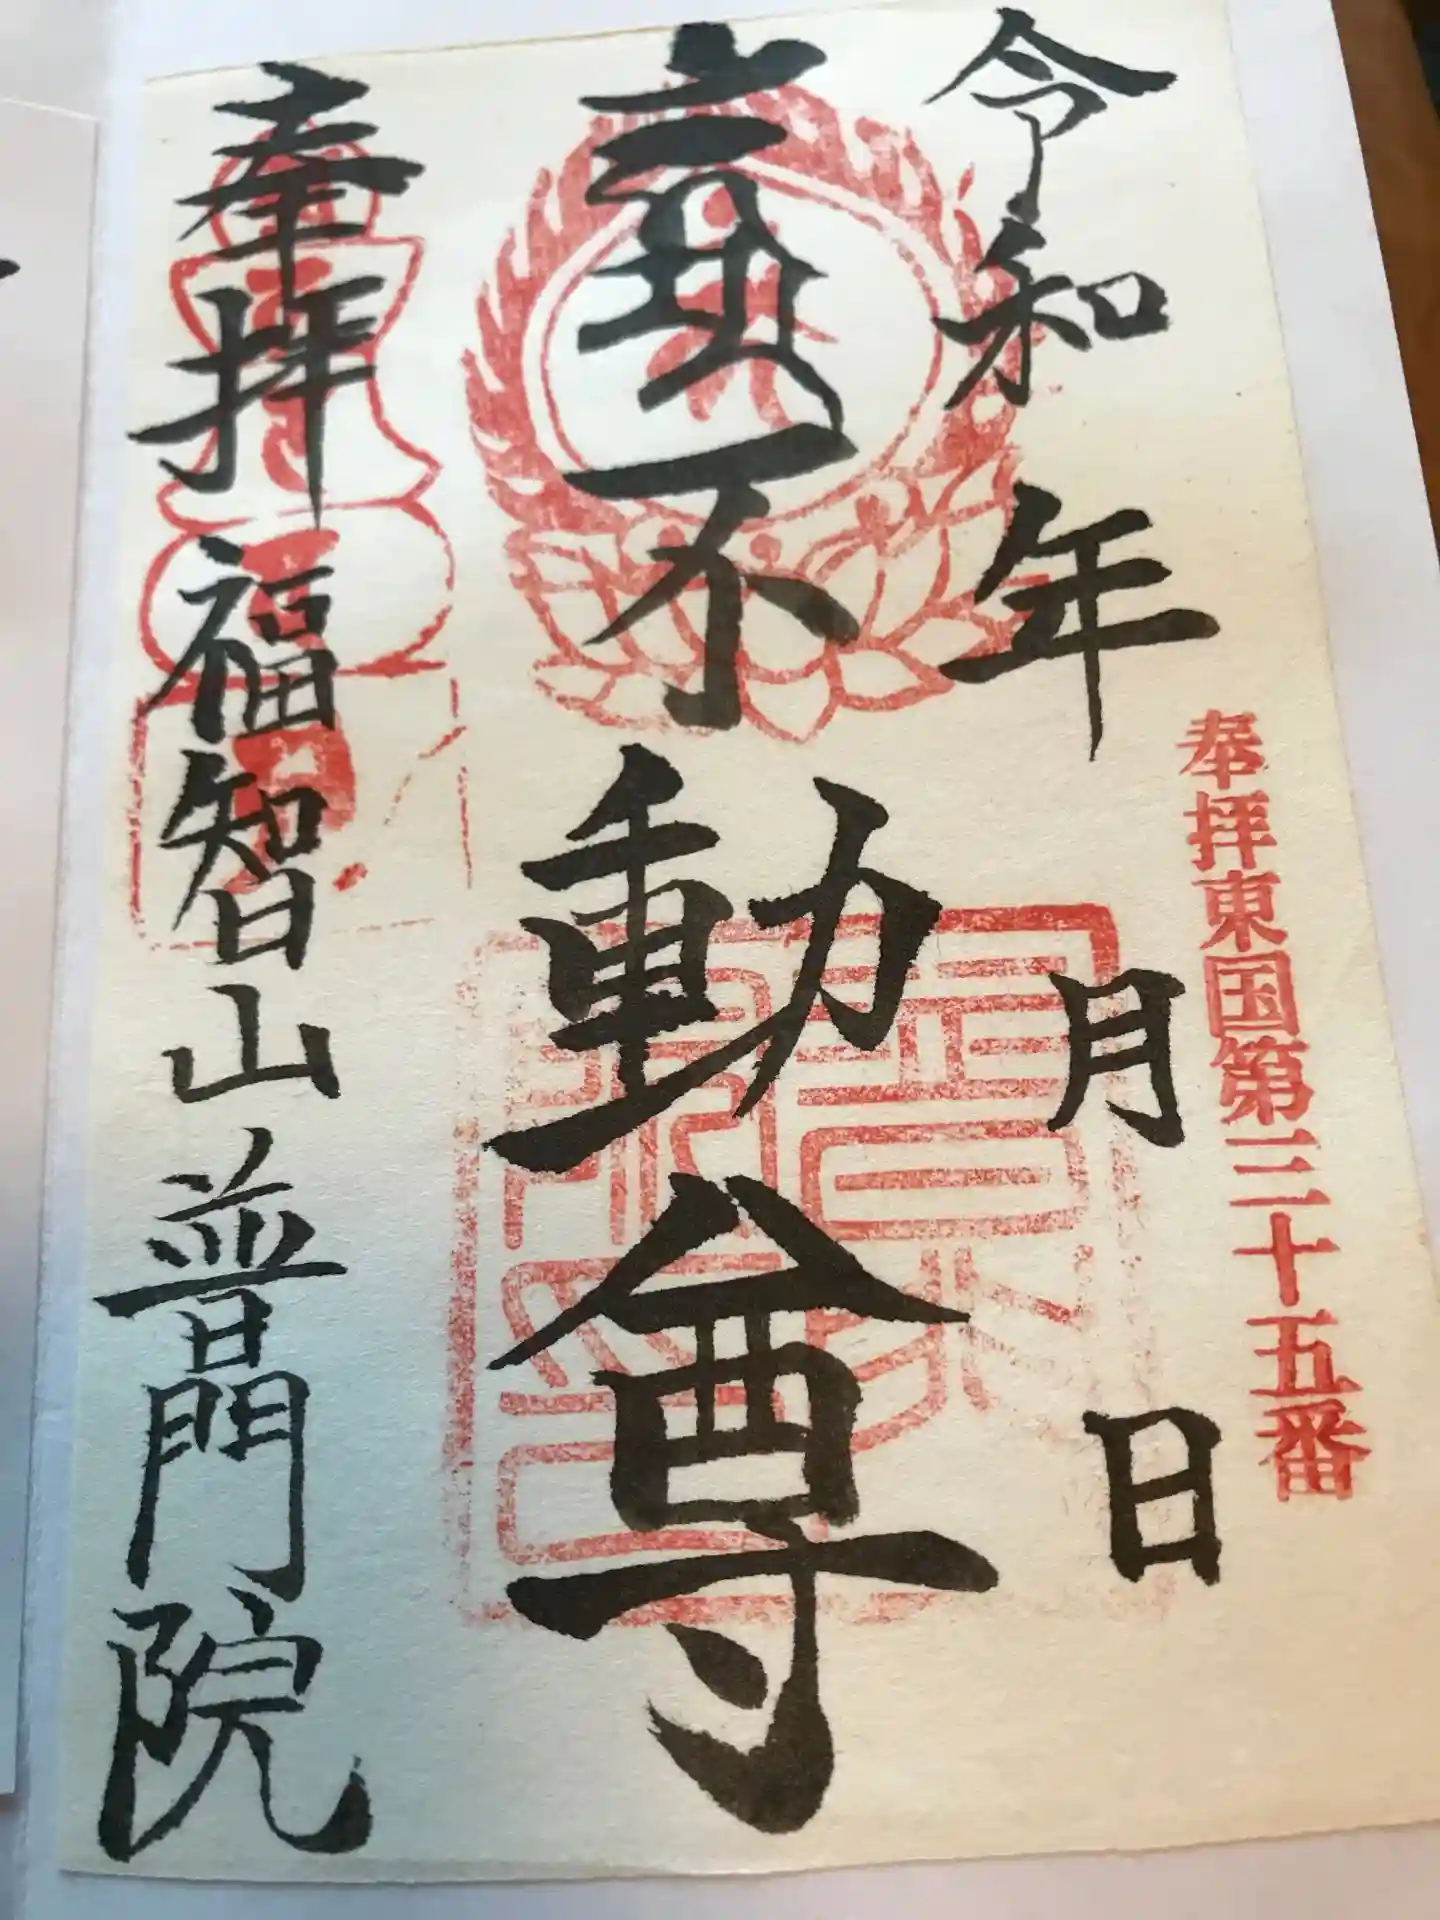 奉拝東国第三十五番
令和 年 月 日
不動尊
奉拝 福智山 普門院